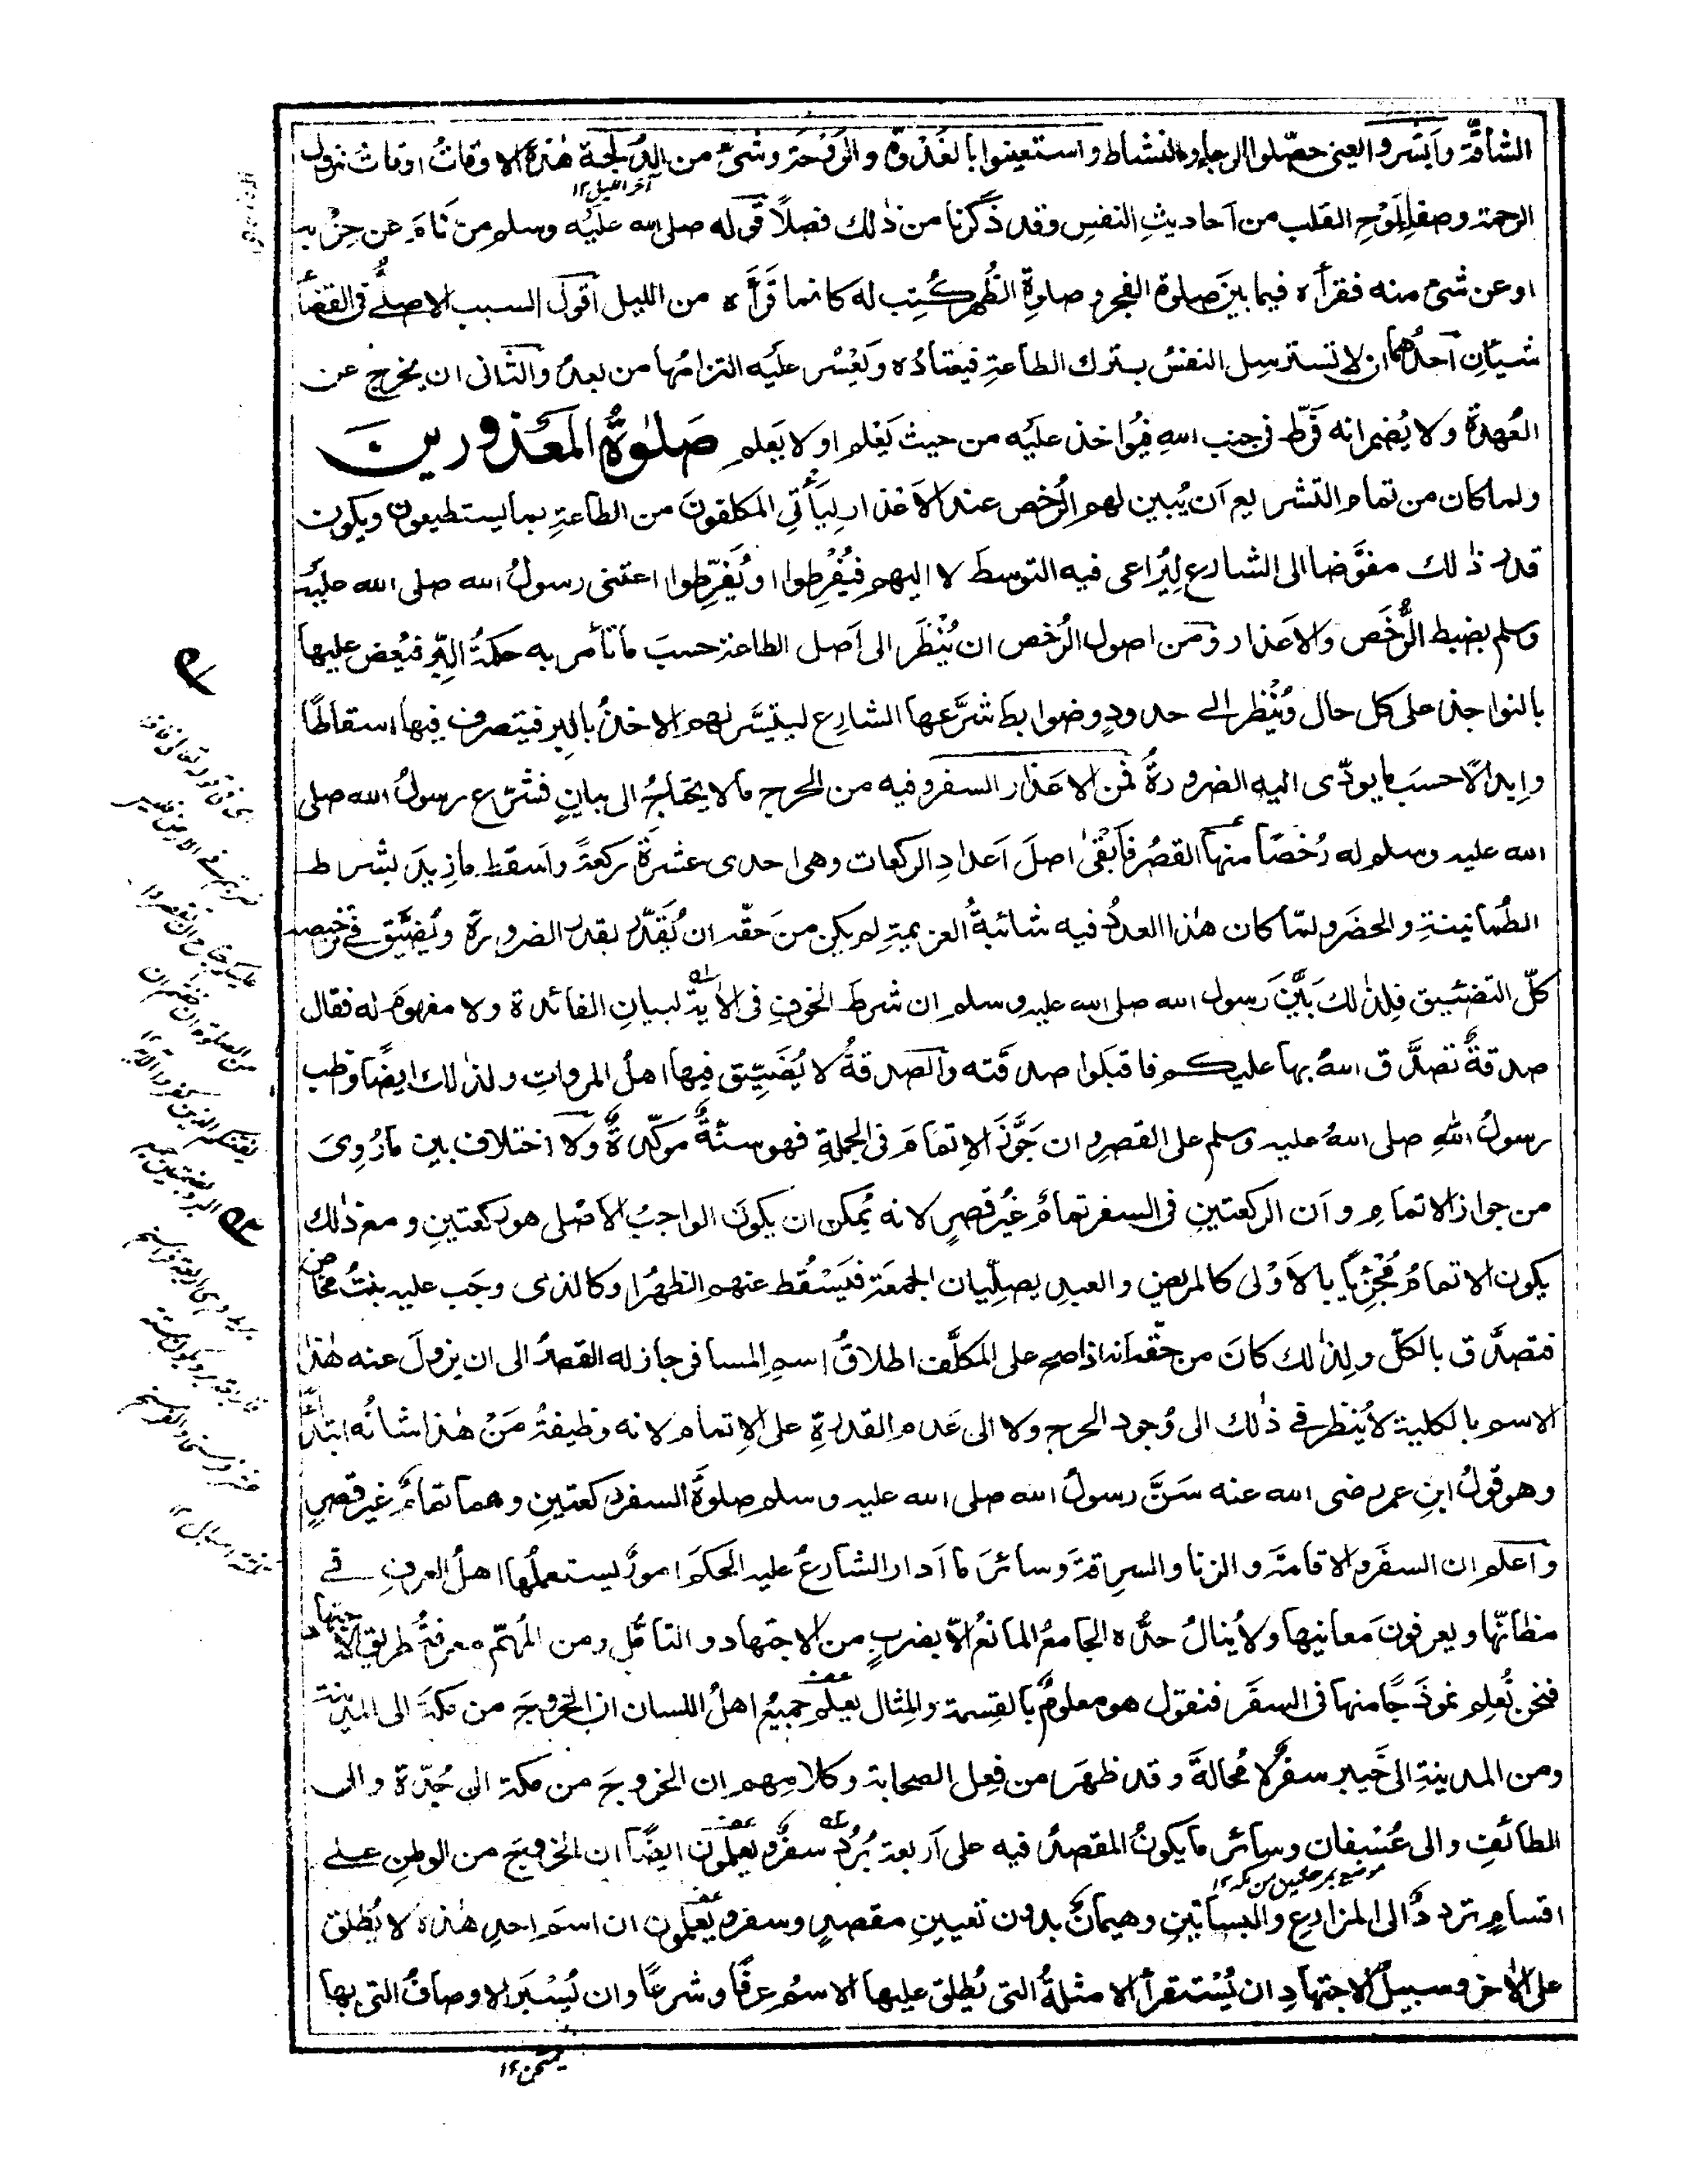 الشاقّة وأبشروا يعني حصّلوا الرجاء والنشاط واستعينوا بالغُدْوة والرَّوْحة وشئ من الدُّلجة هٰذه الاوقاتُ اوقاتُ نزول
آخر الليل ١٢
الرحمة وصقلِ لَوْحِ القلب من اَحاديثِ النفسِ وقد ذكرنا من ذٰلك فصلاً قوله صلى الله عليه وسلم من نَامَ عن حِزْبه
او عن شئ منه فقرأه فيما بين صلوة الفجر وصلوةِ الظُهر كُتِب له كانما قرَأه من الليل اقول السبب الاصليُّ في القضأ
شيئانِ احدُهما ان لا تسترسل النفسُ بترك الطاعةِ فيعتادُه ويَعْسُر عليه التزامُها من بعدُ والثانى ان يخرج عن
العُهدةِ ولا يُضمر انه فرّط في جنب اللهِ فيُواخذ عليه من حيث يَعْلم او لا يَعلم صَلوٰةُ المَعْذورين
ولما كان من تمام التشريع اَن يُبين لهم الرُخص عند الاَعْذار لِيَأْتِي المكلفونَ من الطاعةِ بما يستطيعون ويكون
قدر ذٰلك مفوَّضا الى الشارع لِيُراعى فيه التوسط لا اليهم فيُفْرِطوا او يُفَرِّطوا اعتنى رسولُ الله صلى الله عليه
وسلم بضبط الرُّخَص والاعذار ومن اصول الرُخص ان يُنْظَر الى اَصل الطاعة حسبَ ما تأمر به حكمةُ البِرّ فيُعض عليها
بالنواجذ على كل حال ويُنْظر الى حدودٍ وضوابط شرَّعها الشارع ليتيسَّر لهم الاخذُ بالبِر فيتصرف فيها اسقاطًا
وإبدالًا حسبَ ما يودّى اليه الضرورةُ فمن الاعذار السفر وفيه من الحرج ما لا يحتاجُ الى بيانٍ فشرّع رسولُ الله صلى
الله عليه وسلم له رُخصًا منها القصرُ فاَبْقىٰ اصلَ اَعدادِ الركعات وهى احدى عشرَةَ ركعةً واَسقط ما زِيدَ بشرط
الطُمانينةِ والحضَر ولمّا كان هٰذا العددُ فيه شائبةُ العزيمةِ لم يكن من حَقّه ان يُقَدّر بقدر الضرورةِ ويُضَيَّق في ترخيصه
كلّ التضئيق فلِذٰلك بَيَّنَ رَسول الله صلى الله عليه وسلم ان شرطَ الخوفِ فى الاٰية لبيانِ الفائدة ولا مفهومَ له فقال
صدقةٌ تصدَّق اللهُ بها عليكم فاقبَلوا صدقَته والصدقةُ لا يُضَيِّق فيها اهلُ المروات ولذٰلك ايضًا واظب
رسولُ اللهِ صلى اللهُ عليه وسلم على القصرِ وان جَوَّزَ الاِتمامَ فى الجملةِ فهو سنّةٌ موكّدةٌ ولا اختلاف بين ما رُوِىَ
من جواز الاتمامِ و اَن الركعتينِ فى السفر تمامٌ غيرُ قصرٍ لانه يُمكن ان يكونَ الواجبُ الاَصْلى هو ركعتينِ و مع ذٰلك
يكون الاتمامُ مُجْزِيًا بالاَوْلى كالمريضِ والعبدِ يصلّيان الجمعَة فيَسْقُط عنهم الظهرُ او كالذى وجَب عليه بنتُ مخاض
فتصدَّق بالكلّ ولِذٰلك كانَ من حقّه انه اذا صح على المكلَّف اطلاقُ اسمِ المسافر جاز له القصرُ الى ان يزولَ عنه هٰذا
الاسم بالكلية لا يُنظر في ذٰلك الى وُجود الحرج ولا الى عَدم القدرةِ على الاِتمام لانه وظيفةُ مَنْ هٰذا شانُه ابتداءً
وهو قولُ ابنِ عمر رضى الله عنه سَنَّ رسولُ الله صلى الله عليه وسلم صلوةَ السفر ركعتينِ وهما تمامٌ غير قصرٍ
واعلم ان السفَر والاقامةَ والزنا والسرقةَ وسائرَ ما اَدار الشارعُ عليه الحكمَ امورٌ يستعملُها اهلُ العرفِ في
مظانّها ويعرفونَ معانيها ولا يُنالُ حدُّه الجامعُ المانعُ الاّ بضربٍ من الاجتهاد والتأمُّل ومن المُهمّ معرفةُ طريق الاجتهاد
فنحن نُعلم نموذَجًا منها فى السفَر فنقول هو معلومٌ بالقِسمة والمِثال يعلَم جميعُ اهلُ اللسان ان الخروجَ من مكةَ الى المدينة
ومن المدينةِ الى خَيبر سفرٌ لا مُحالةَ وقد ظهَر من فِعل الصحابة وكلامِهم ان الخروجَ من مكة الى جُدّة والى
الطائفِ والى عُسفان وسائر ما يكونُ المقصدُ فيه على اَربعة بُرُدٍ سفرٌ ويعلمون ايضًا ان الخروجَ من الوطنِ على
موضع بمرحلتين من مكه ١٢
اقسامٍ تردُّدٌ الى المزارع والبساتينِ وهيمانٌ بدون تعيينِ مقصدٍ وسفر ويعلمون ان اسمَ احدِ هٰذه لا يُطلق
على الاٰخر وسبيلُ الاجتهادِ ان يُسْتقرأ الامثلةُ التى يُطلق عليها الاسمُ عرفًا وشرعًا وان يُسْبَر الاوصافُ التى بها
يمتحن ١٢